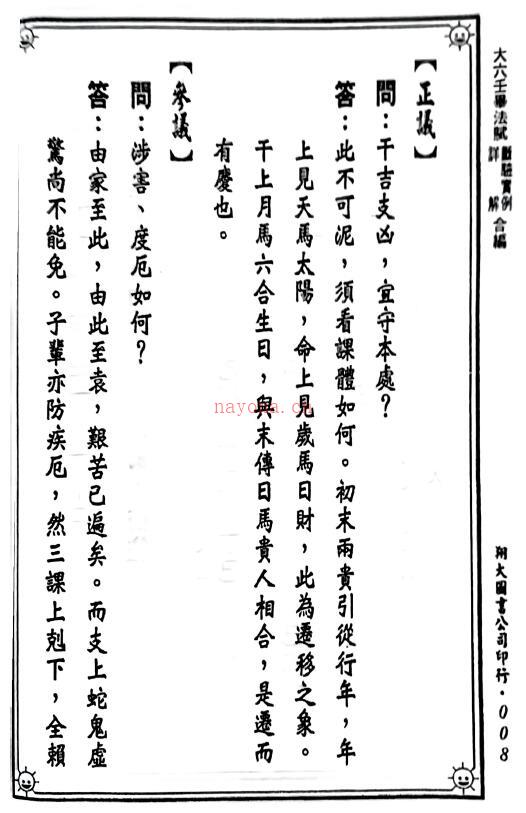 大六壬畢法賦斷驗實例詳解合編
【正議】
問：干吉支凶，宜守本處？
答：此不可泥，須看課體如何。初末兩貴引從行年，年
上見天馬太陽，命上見歲馬日財，此為遷移之象。
干上月馬六合生日，與末傳日馬貴人相合，是遷而
有慶也。
【參議】
問：涉害、度厄如何？
答：由家至此，由此至袁，艱苦已遍矣。而支上蛇鬼虛
驚尚不能免。子輩亦防疾厄，然三課上剋下，全賴
翔大圖書公司印行·008
nayona.cn